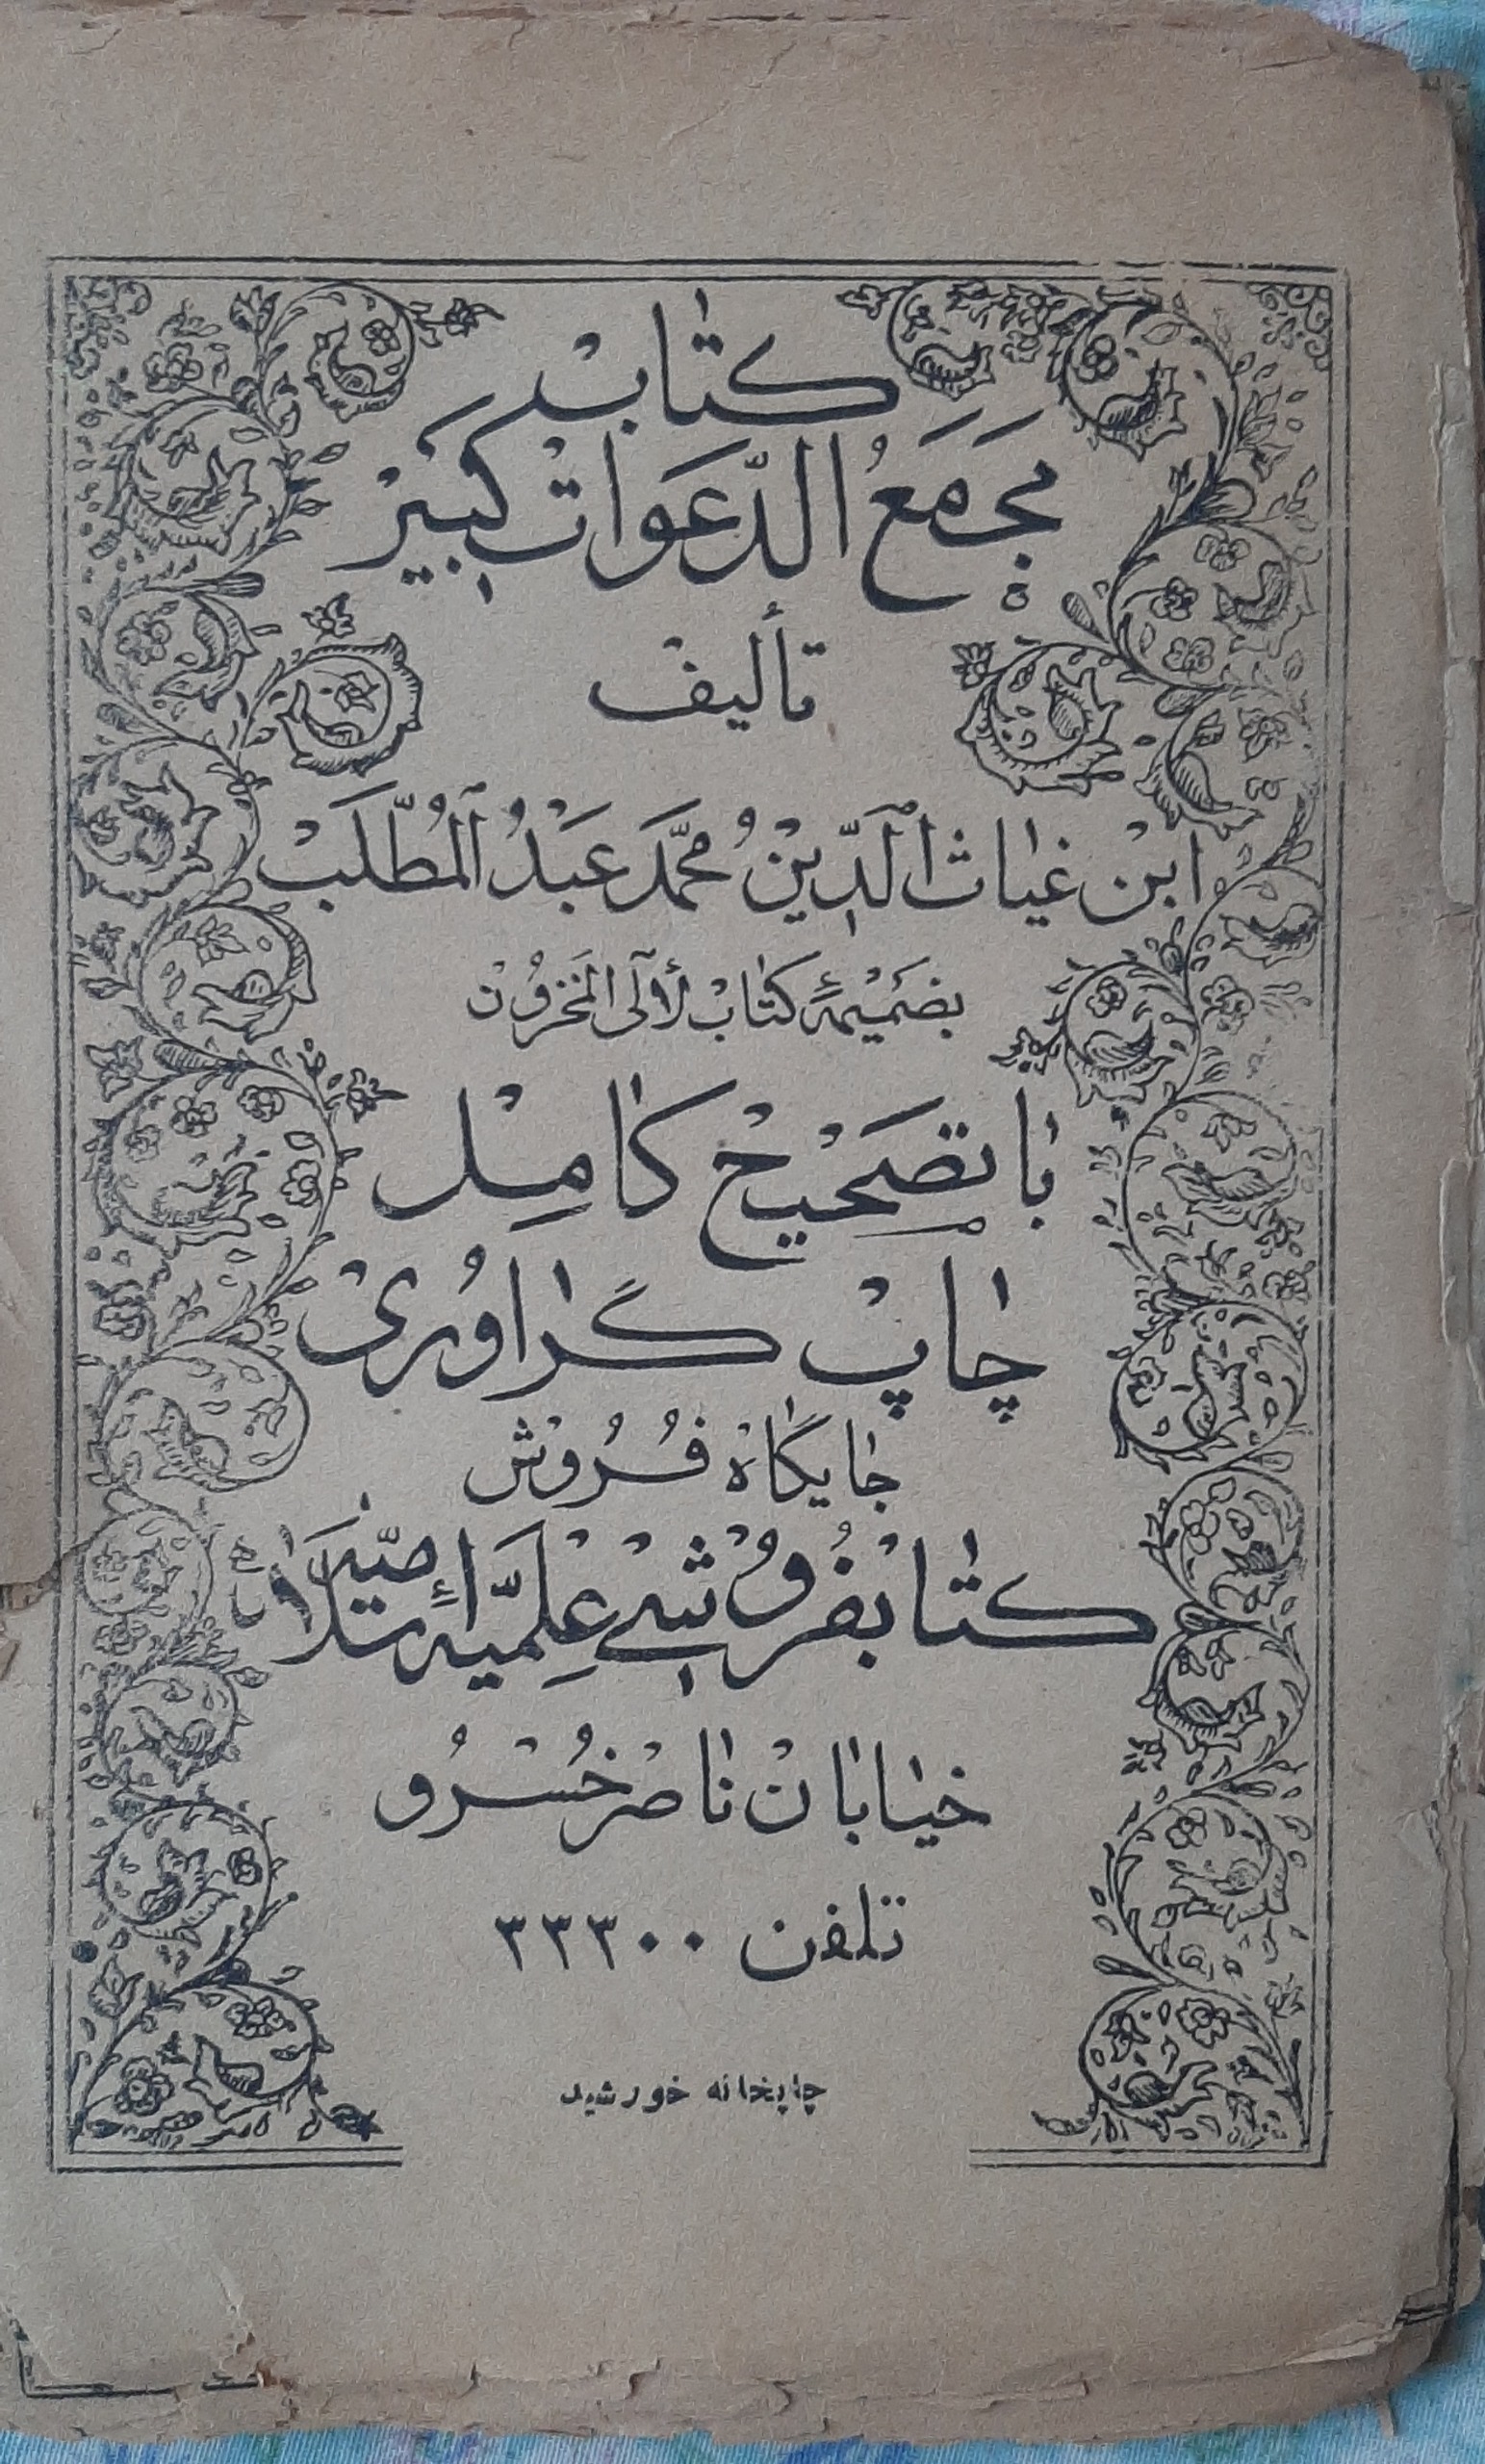 كتاب
مَجمَعُ الدَّعَوات كَبيْر
تأليف
ابن غياث الدّين محمّد عَبْدُ المُطَّلَبْ
بضَميْمۀ كتابْ لأ لى المَخزُونْ
با تصَحيْحْ كامِلْ
چاپْ گراوُرىْ
جايگاهْ فُرُوشْ
كتابفُروُشىْ عِلميّه اِسْلاميّه
خيابانْ ناصرْ خُسْرُو
تلفن ۳۳۳۰۰
چاپخانه خورشيد